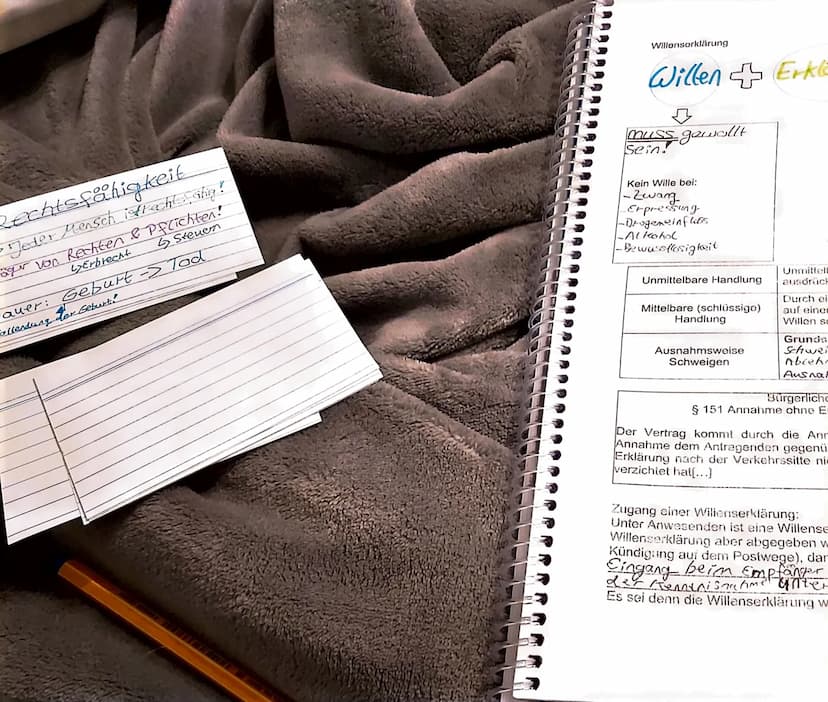 Rechtsfähigkeit
Jeder Mensch ist rechtsfähig!
von Rechten & Pflichten!
↳Erbrecht ↳Steuern
Geburt -> Tod
der Geburt!
Willenserklärung
Willen + Erklä
muss gewollt
sein!
Kein Wille bei:
-Zwang
-Erpressung
-Drogeneinfluss
-Alkohol
-Bewusstlosigkeit
Unmittelbare Handlung
Unmittel
ausdrüc
Mittelbare (schlüssige)
Handlung
Durch ei
auf einen
Willen s
Ausnahmsweise
Schweigen
Grunds
Schwei
Ableh
Ausna
Bürgerliche
§ 151 Annahme ohne E
Der Vertrag kommt durch die Ann
Annahme dem Antragenden gegenü
Erklärung nach der Verkehrssitte ni
verzichtet hat[...]
Zugang einer Willenserklärung:
Unter Anwesenden ist eine Willense
Willenserklärung aber abgegeben w
Kündigung auf dem Postwege), dar
Eingang beim Empfänger
der Kenntnisnahme unter
Es sei denn die Willenserklärung w